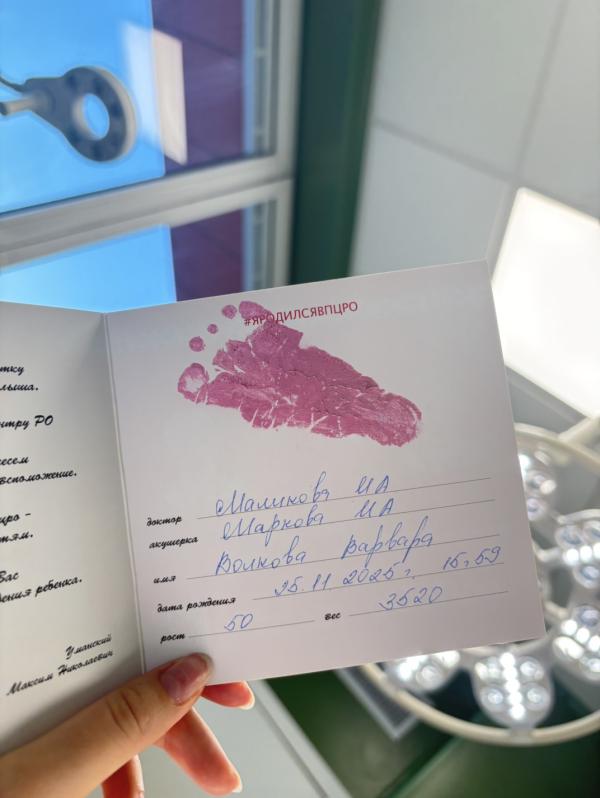 тку
лыша.
нтру РО
есем
вспоможение.
цро –
тям.
Вас
дения ребенка.
Уманский
Максим Николаевич
#ЯРОДИЛСЯВПЦРО
доктор Маликова МА
акушерка Маркова МА
имя Волкова Варвара
дата рождения 25.11.2025г. 15:59
рост 50 вес 3520